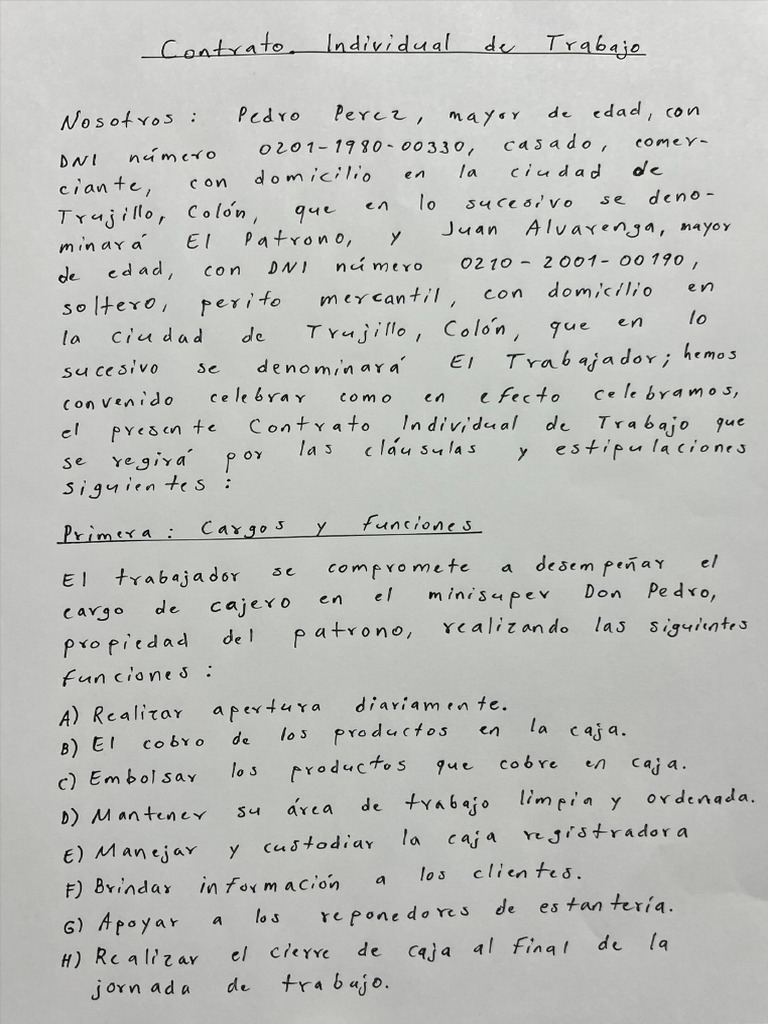 Contrato Individual de Trabajo
Nosotros: Pedro Perez, mayor de edad, con
DNI número 0201-1980-00330, casado, comer-
ciante, con domicilio en la ciudad de
Trujillo, Colón, que en lo sucesivo se deno-
minará El Patrono, y Juan Alvarenga, mayor
de edad, con DNI número 0210-2001-00190,
soltero, perito mercantil, con domicilio en
la ciudad de Trujillo, Colón, que en lo
sucesivo se denominará El Trabajador; hemos
convenido celebrar como en efecto celebramos,
el presente Contrato Individual de Trabajo que
se regirá por las cláusulas y estipulaciones
siguientes:
Primera: Cargos y funciones
El trabajador se compromete a desempeñar el
cargo de cajero en el minisuper Don Pedro,
propiedad del patrono, realizando las siguientes
funciones:
A) Realizar apertura diariamente.
B) El cobro de los productos en la caja.
C) Embolsar los productos que cobre en caja.
D) Mantener su área de trabajo limpia y ordenada.
E) Manejar y custodiar la caja registradora
F) Brindar información a los clientes.
G) Apoyar a los reponedores de estantería.
H) Realizar el cierre de caja al final de la
jornada de trabajo.